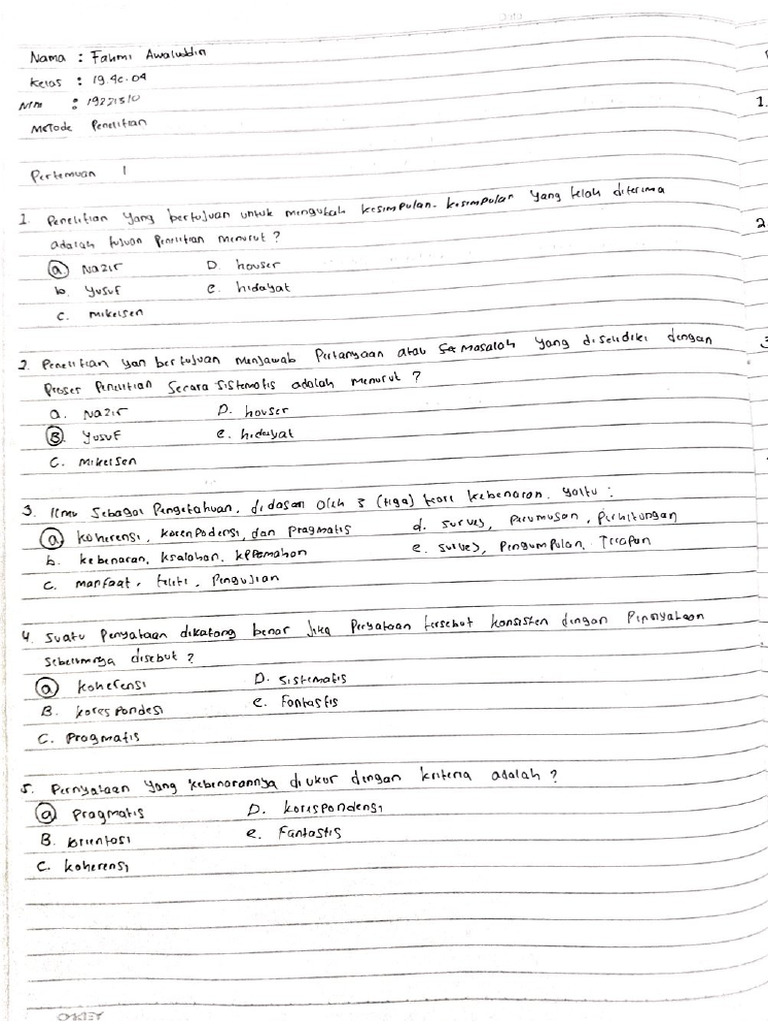 Nama : Fahmi Awaluddin
Kelas : 19.4C.04
NIM : 19221310
Metode Penelitian
Pertemuan 1
1. Penelitian yang bertujuan untuk mengubah kesimpulan-kesimpulan yang telah diterima
adalah tujuan Penelitian menurut ?
a. Nazir D. houser
b. Yusuf e. hidayat
c. mikelsen
2. Penelitian yan bertujuan menjawab Pertanyaan atau Permasalah yang diselidiki dengan
Proser Penelitian Secara Sistematis adalah menurut ?
a. Nazir D. houser
B. Yusuf e. hidayat
C. mikelsen
3. Ilmu Sebagai Pengetahuan, didasari oleh 3 (tiga) teori kebenaran. yaitu :
a. koherensi, korenpodensi, dan pragmatis d. survey, perumusan, Perhitungan
b. kebenaran, ksalahan, e. survey, Pengumpulan, Terapan
C. manfaat, teliti, Pengujian
4. Suatu Penyataan dikatang benar Jika Peryataan tersebut konsisten dengan Pernyataan
Sebelumnya disebut ?
a koherensi D. Sistematis
B. korespondesi e. Fantastis
C. Pragmatis
5. Pernyataan yang kebenarannya di ukur dengan kriteria adalah ?
a Pragmatis D. korespondensi
B. orientasi e. Fantastis
C. koherensi
1.
2.
3